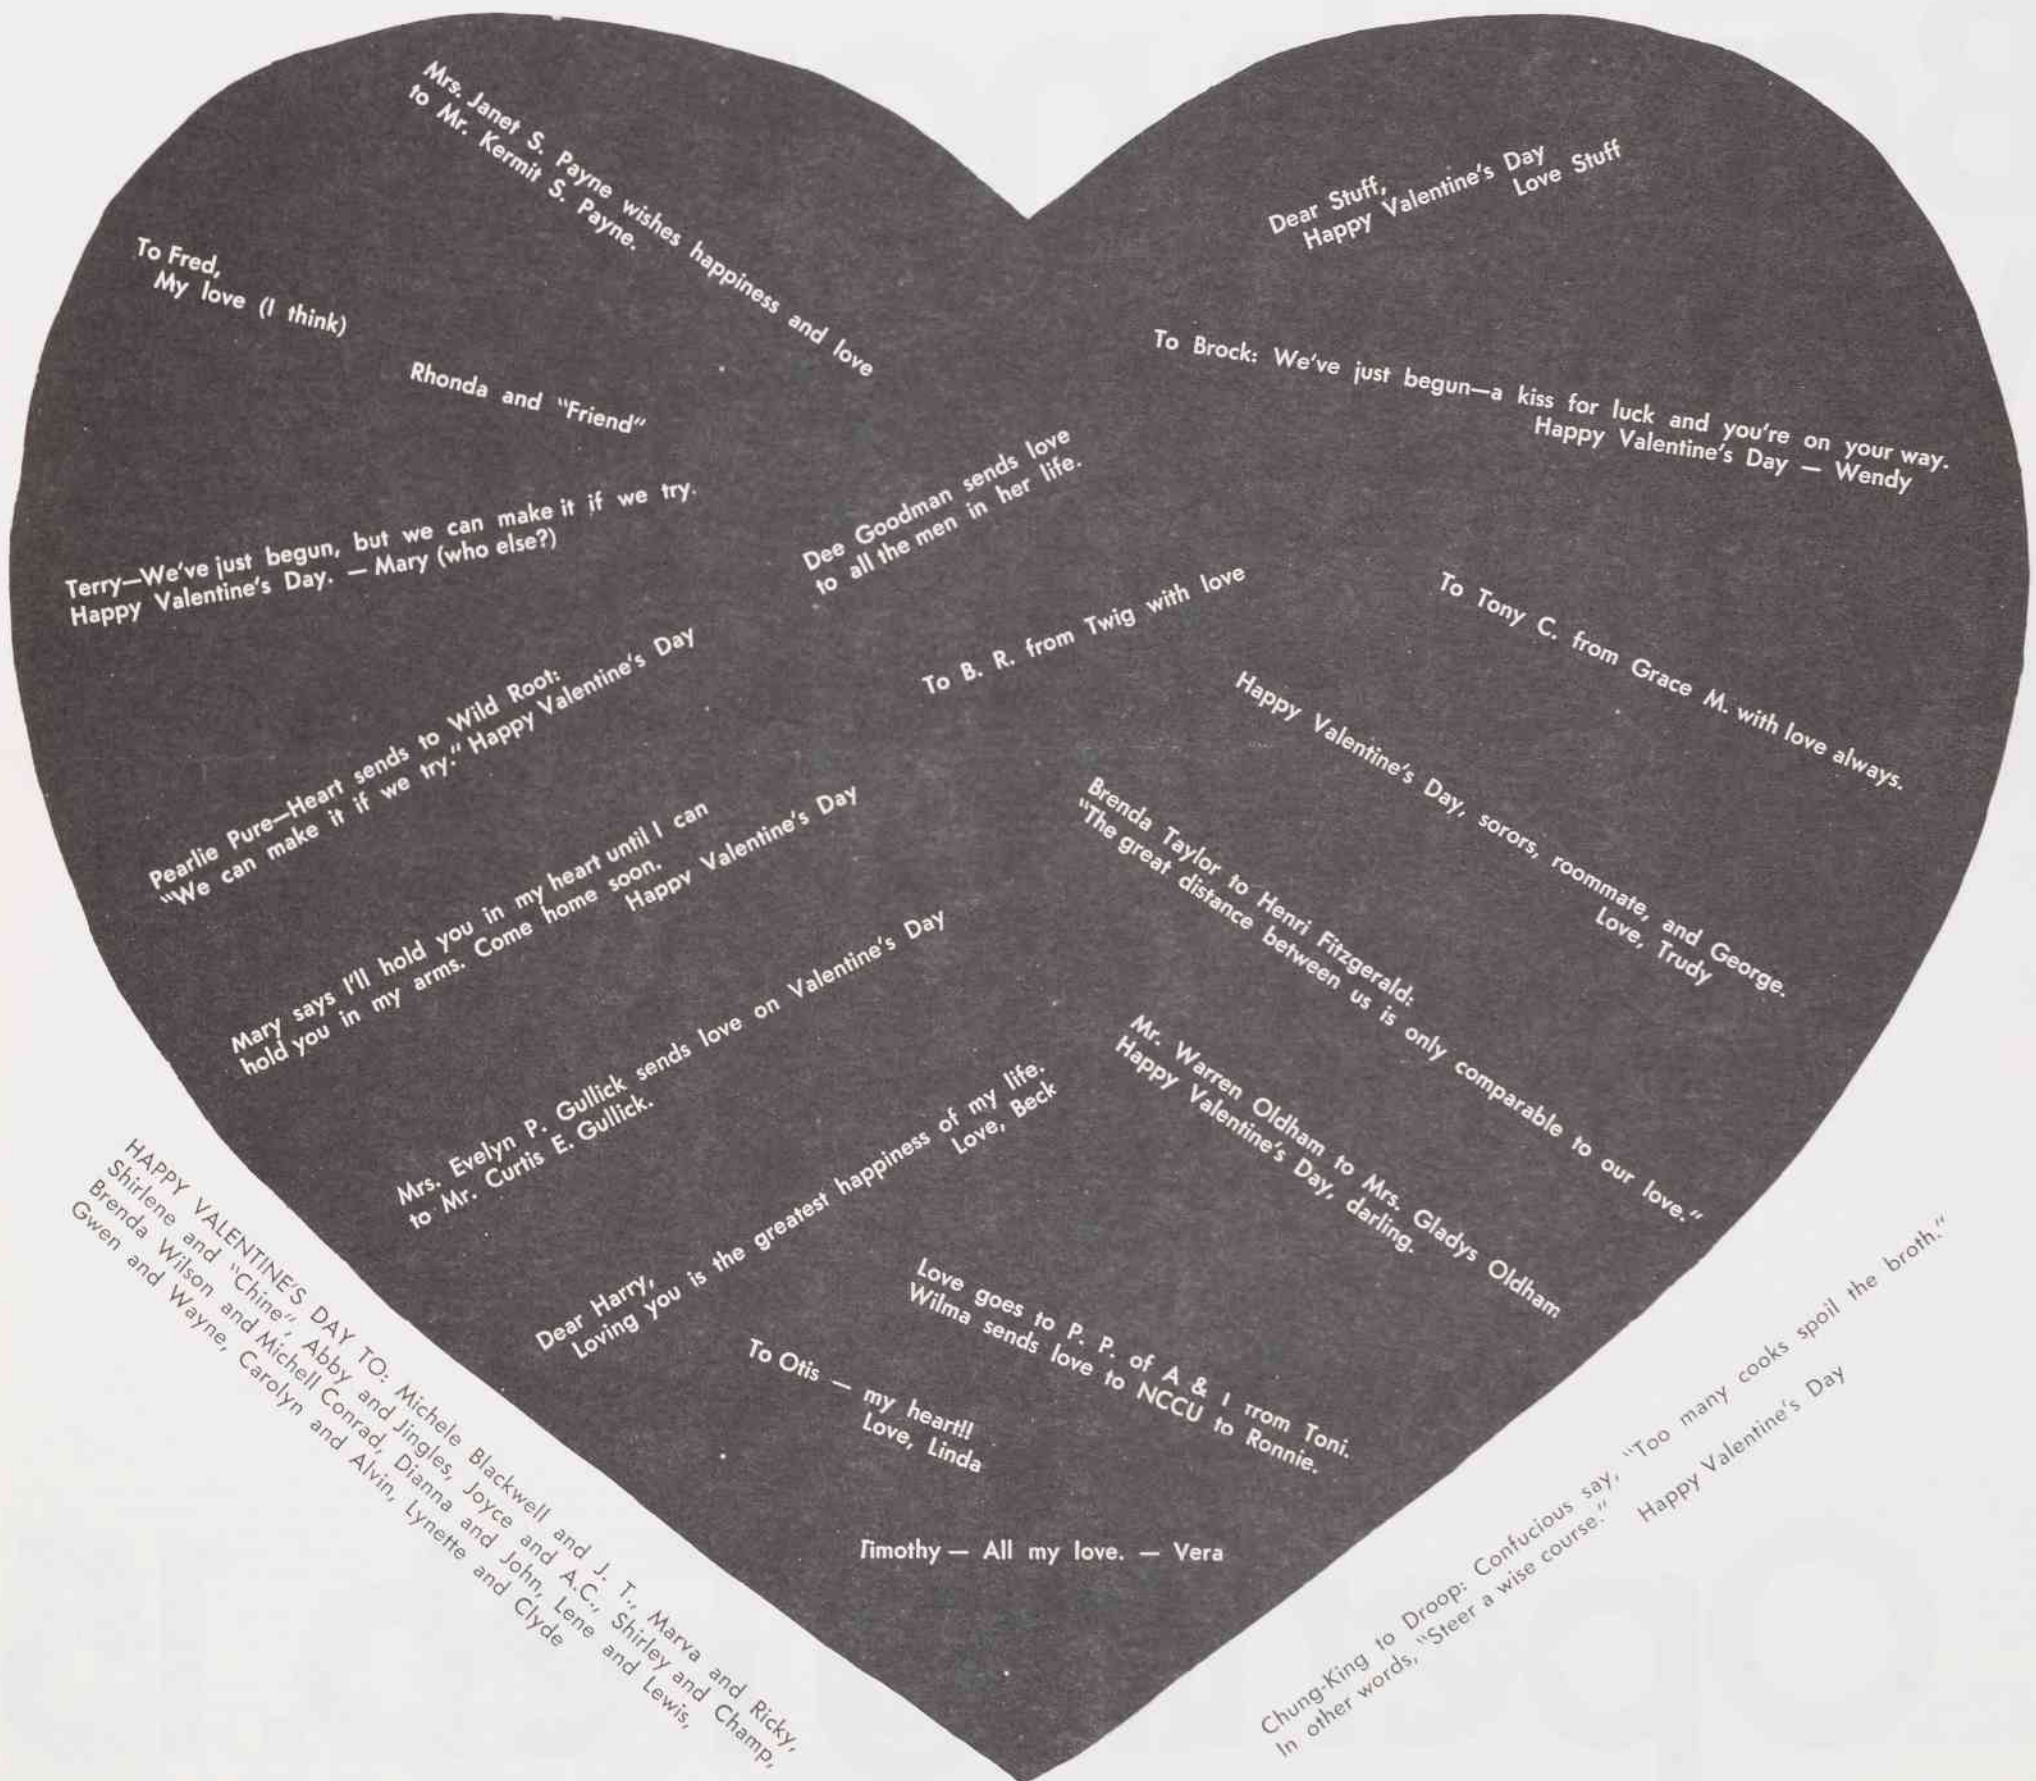 Mrs. Janet S. Payne wishes happiness and love
to Mr. Kermit S. Payne.
Dear Stuff,
Happy Valentine's Day
Love Stuff
To Fred,
My love (I think)
Rhonda and "Friend"
To Brock: We've just begun—a kiss for luck and you're on your way.
Happy Valentine's Day — Wendy
Terry—We've just begun, but we can make it if we try.
Happy Valentine's Day. — Mary (who else?)
Dee Goodman sends love
to all the men in her life.
To B. R. from Twig with love
To Tony C. from Grace M. with love always.
Pearlie Pure—Heart sends to Wild Root:
"We can make it if we try." Happy Valentine's Day
Happy Valentine's Day, sorors, roommate, and George.
Love, Trudy
Mary says I'll hold you in my heart until I can
hold you in my arms. Come home soon.
Happy Valentine's Day
Brenda Taylor to Henri Fitzgerald:
"The great distance between us is only comparable to our love."
Mrs. Evelyn P. Gullick sends love on Valentine's Day
to Mr. Curtis E. Gullick.
Mr. Warren Oldham to Mrs. Gladys Oldham
Happy Valentine's Day, darling.
Dear Harry,
Loving you is the greatest happiness of my life.
Love, Beck
Love goes to P. P. of A & I from Toni.
Wilma sends love to NCCU to Ronnie.
To Otis — my heart!!
Love, Linda
Timothy — All my love. — Vera
HAPPY VALENTINE'S DAY TO: Michele Blackwell and J. T., Marva and Ricky,
Shirlene and "Chine", Abby and Jingles, Joyce and A.C., Shirley and Champ,
Brenda Wilson and Michell Conrad, Dianna and John, Lene and Lewis,
Gwen and Wayne, Carolyn and Alvin, Lynette and Clyde
Chung-King to Droop: Confucious say, "Too many cooks spoil the broth."
In other words, "Steer a wise course."
Happy Valentine's Day